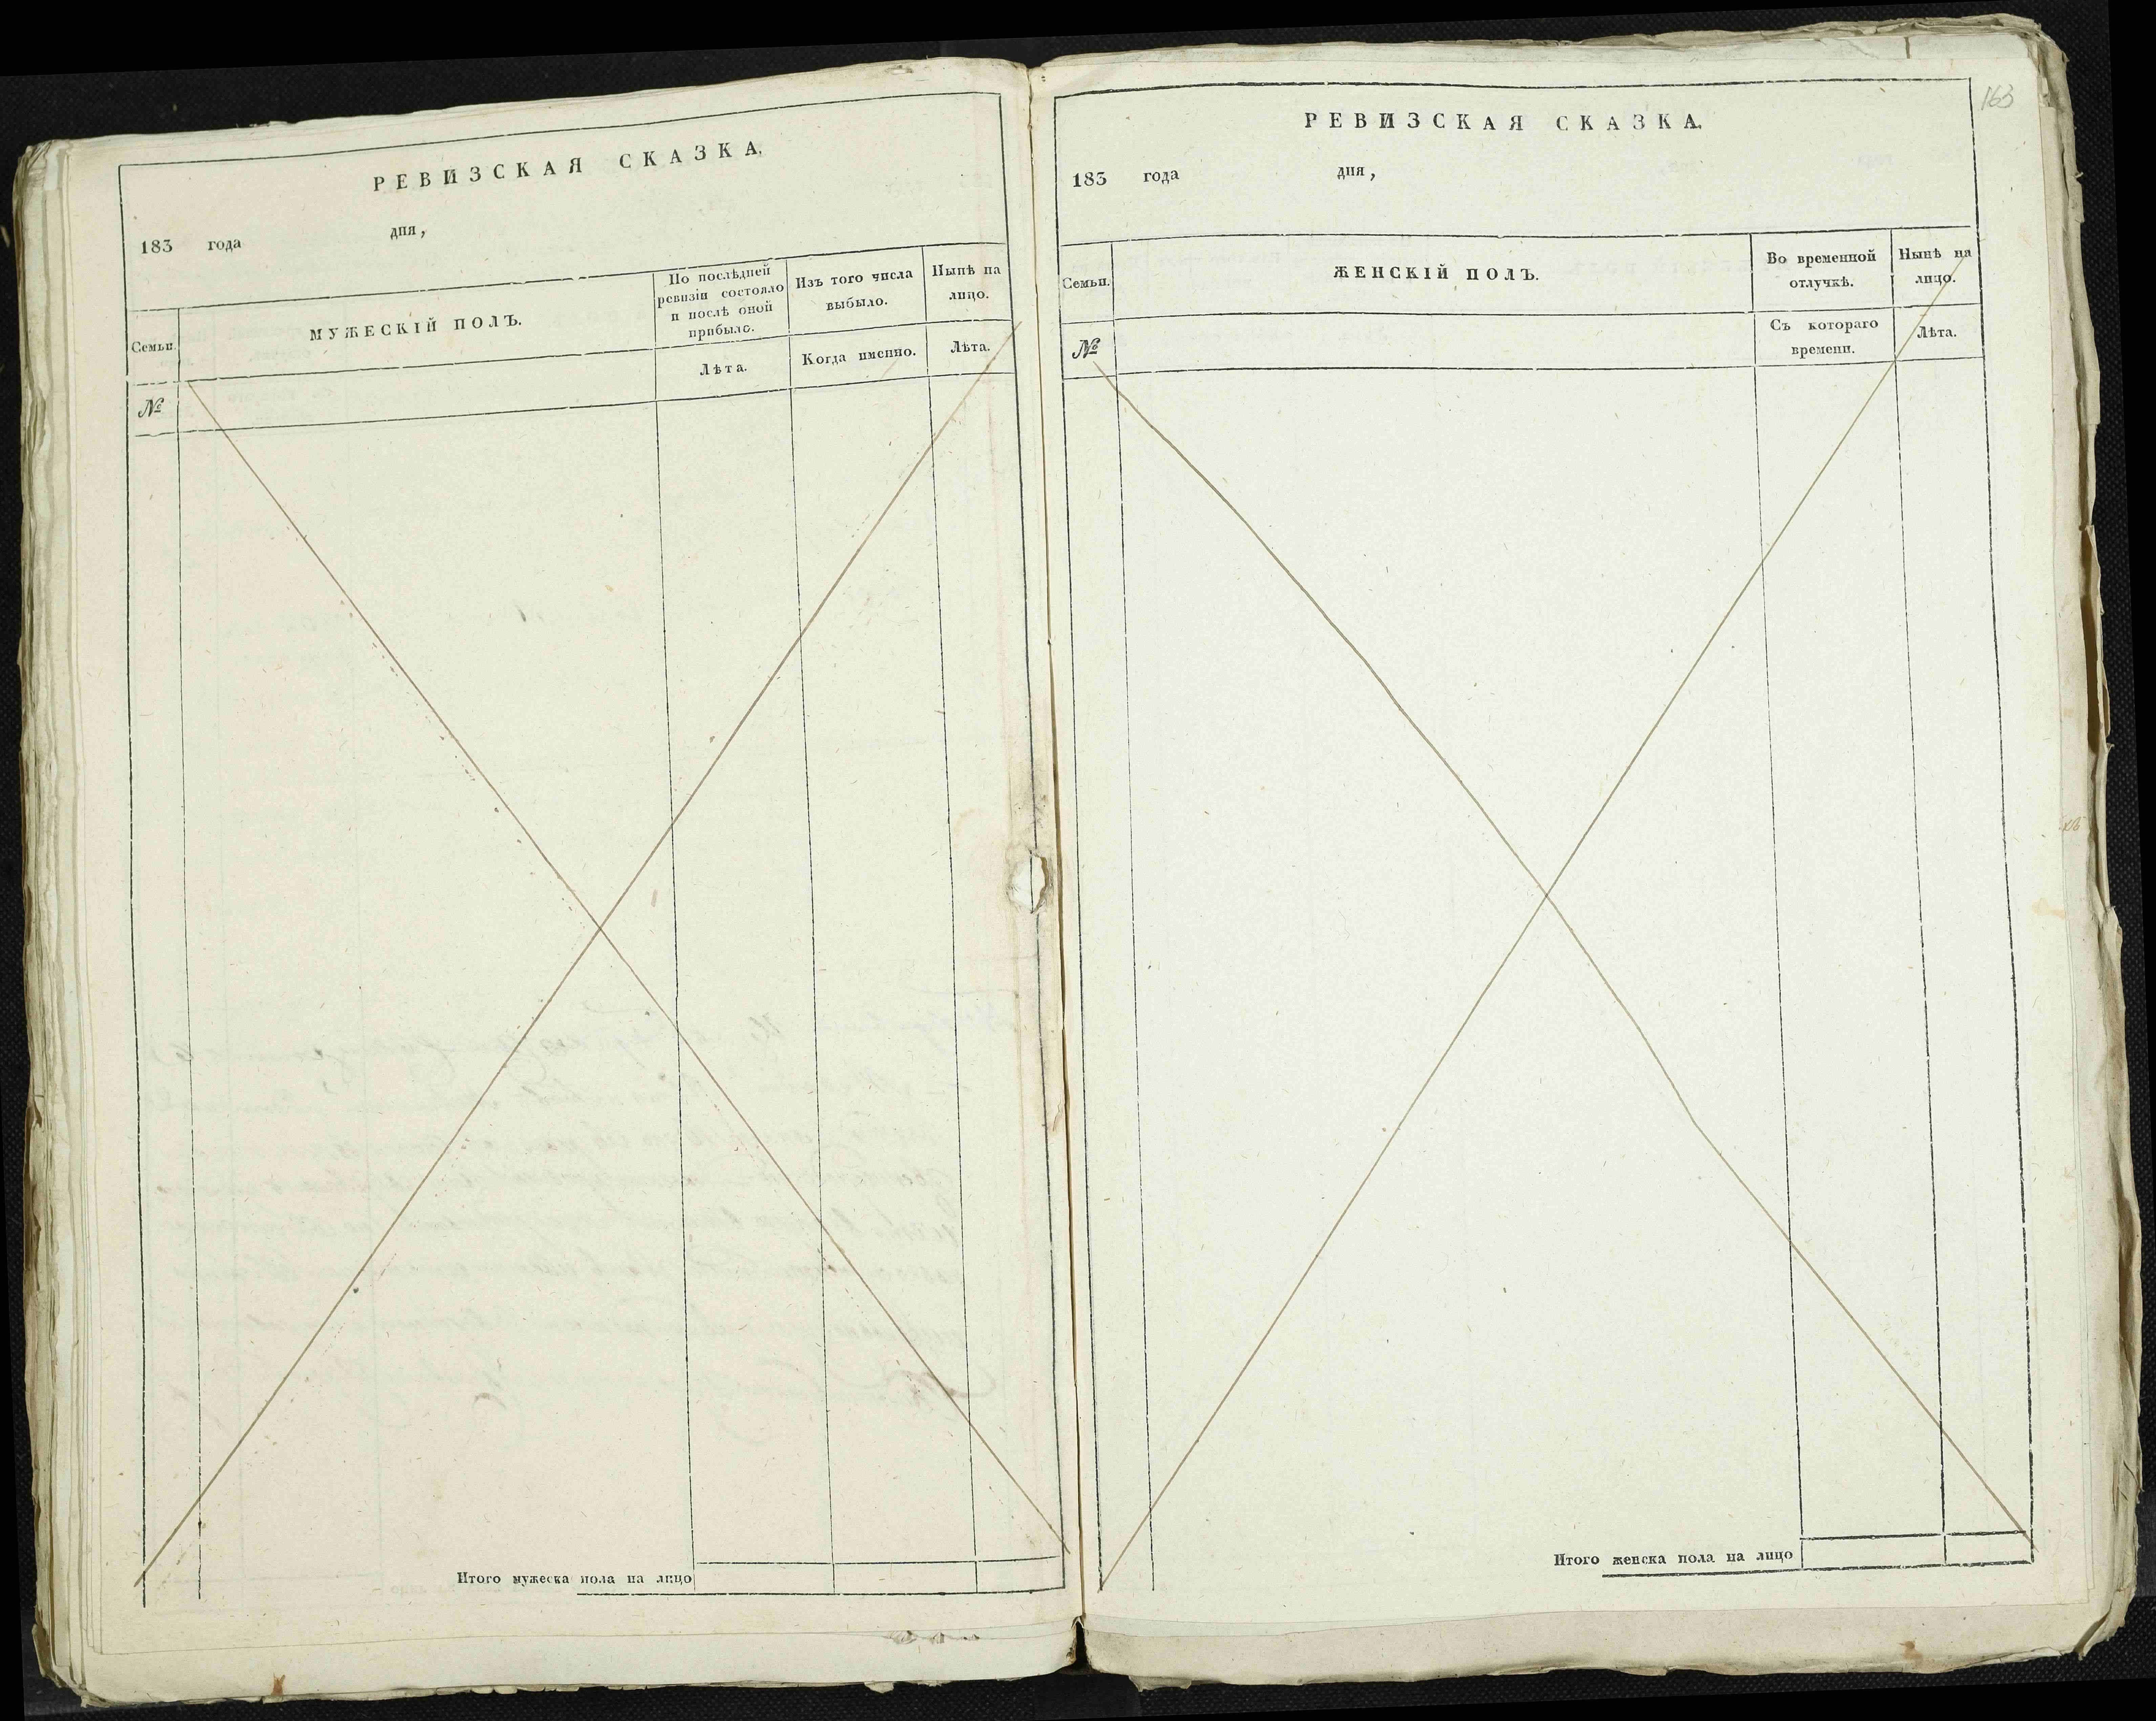 РЕВИЗСКАЯ СКАЗКА,
183 года дня,
Семьи.
МУЖЕСКІЙ ПОЛЪ.
По послѣдней
ревизіи состояло
и послѣ оной
прибыло.
Изъ того числа
выбыло.
Нынѣ на
лицо.
№
Лѣта.
Когда именно.
Лѣта.
Итого мужеска пола на лицо
163
РЕВИЗСКАЯ СКАЗКА.
183 года дня,
Семьи.
ЖЕНСКІЙ ПОЛЪ.
Во временной
отлучкѣ.
Нынѣ на
лицо.
№
Съ котораго
времени.
Лѣта.
Итого женска пола на лицо